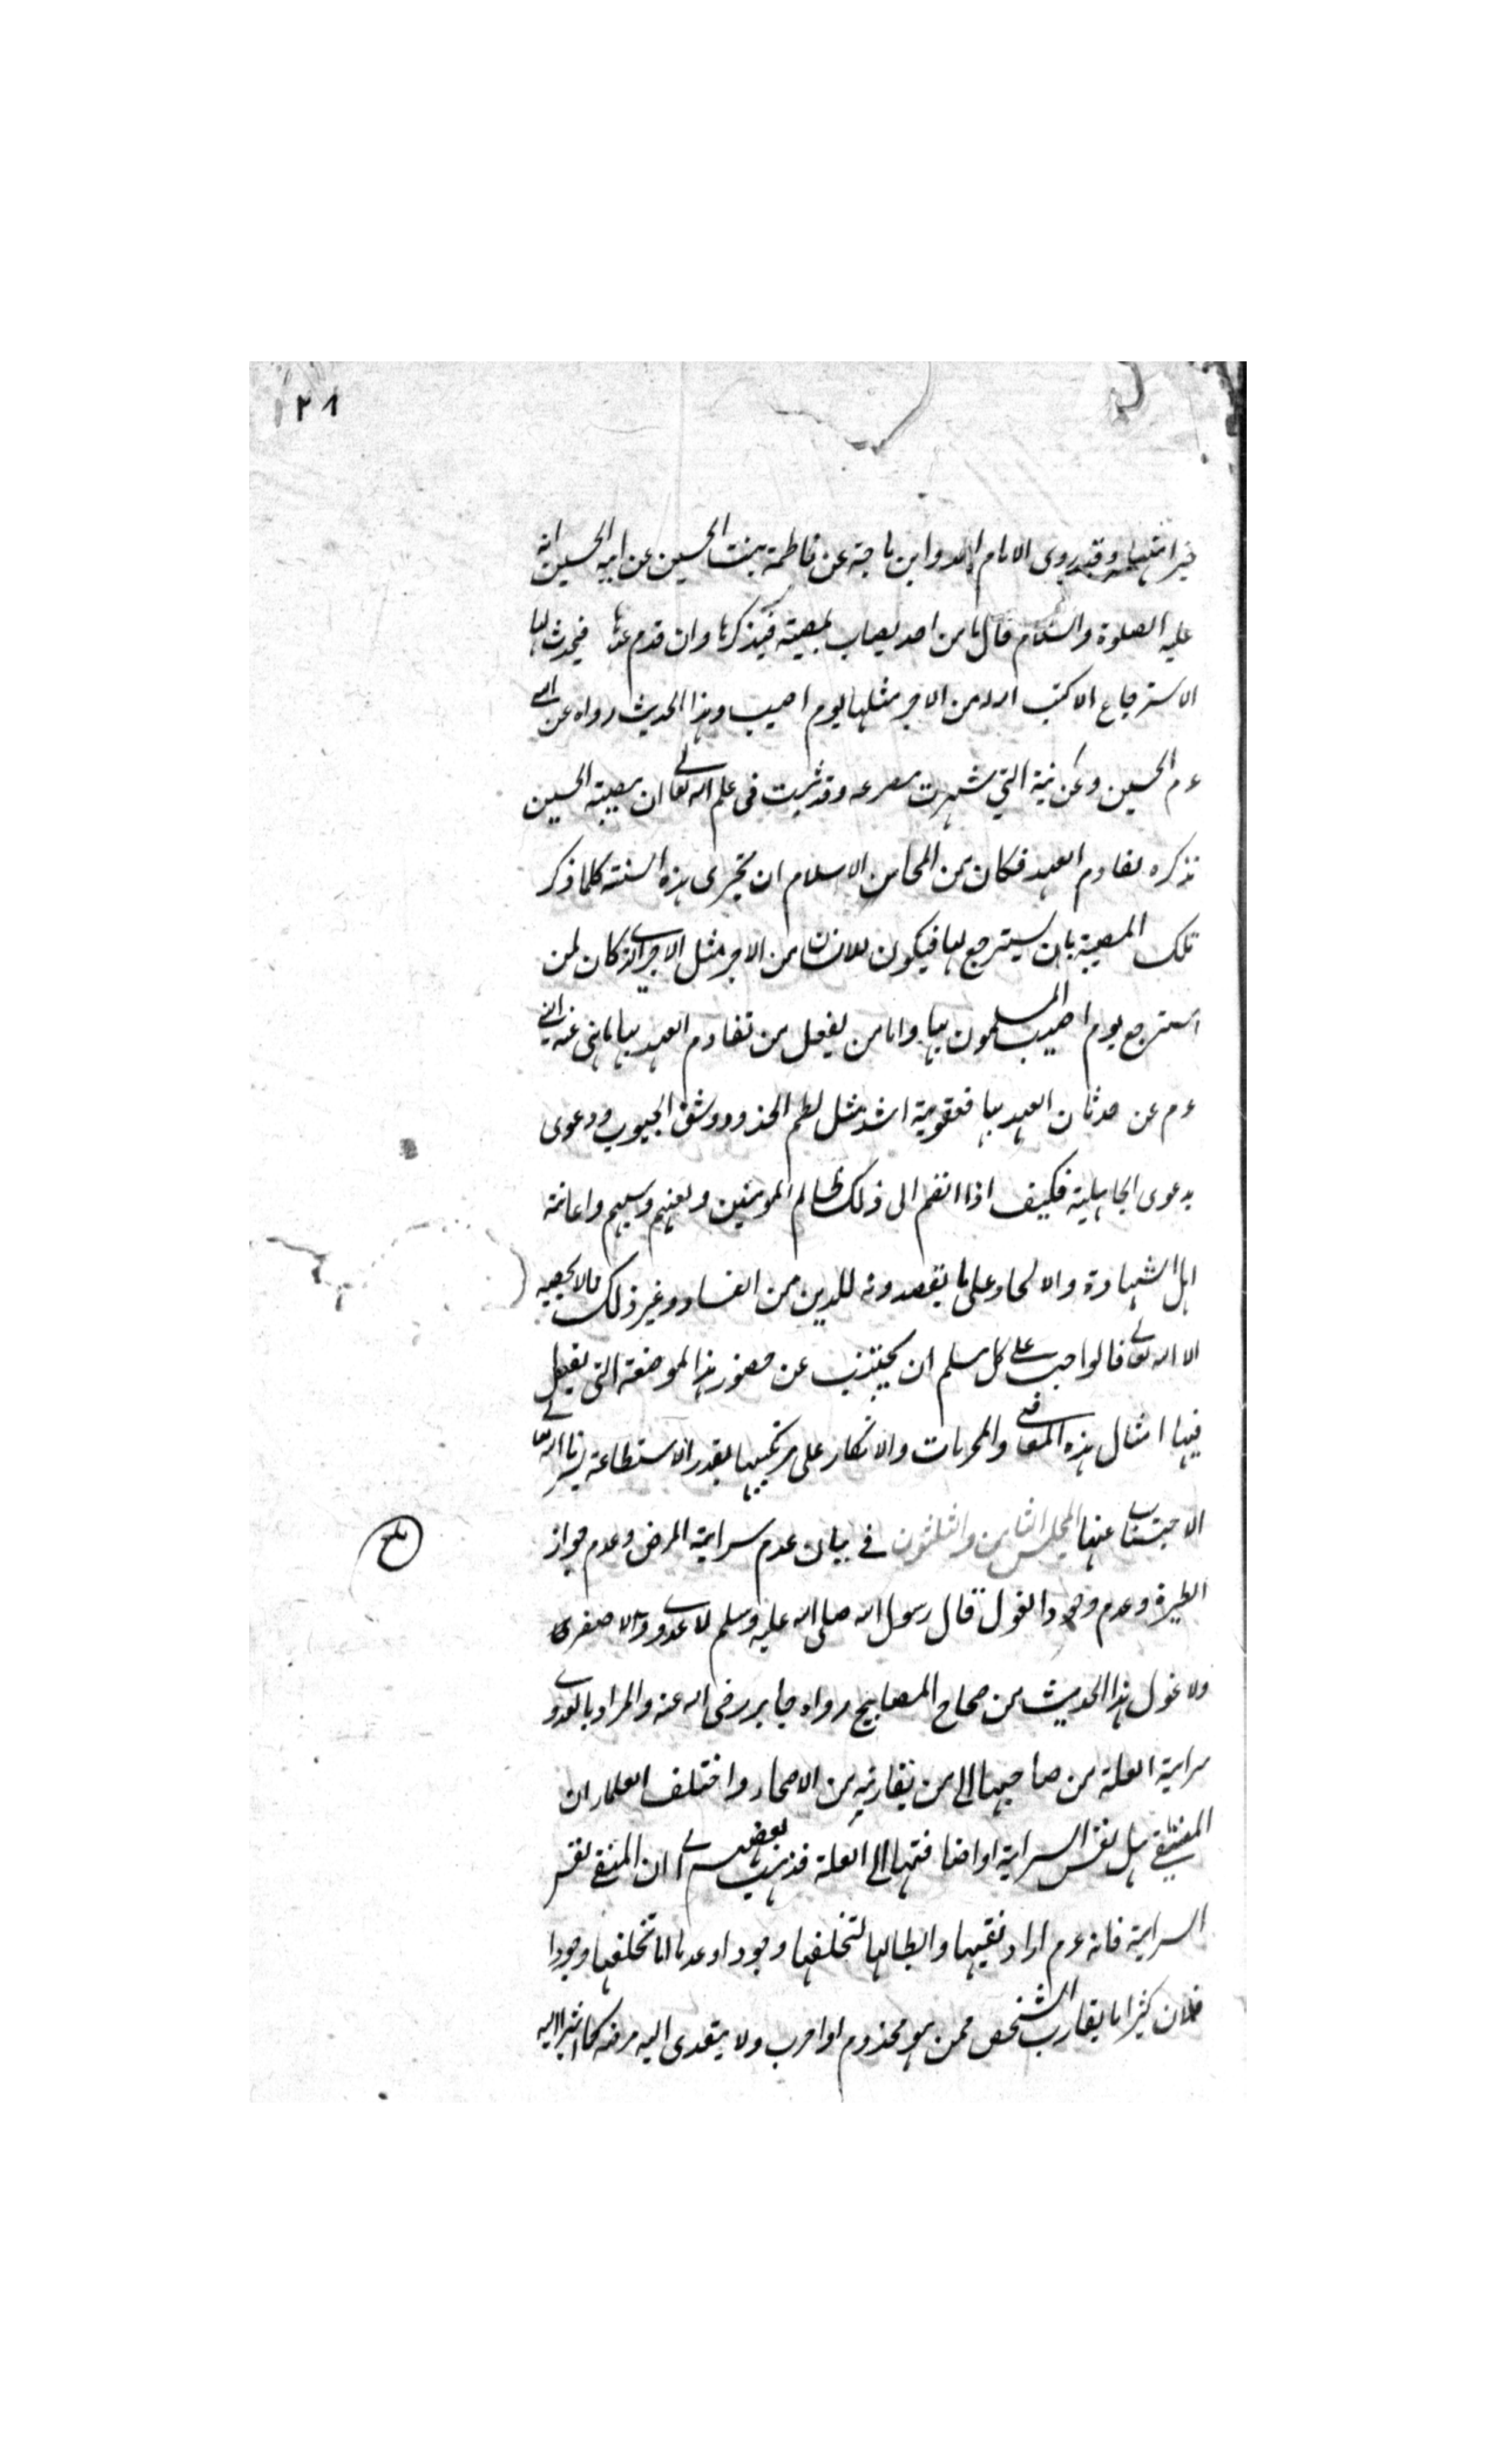 ٢٨١
خيرا منها وقد روى الامام احمد وابن ماجة عن فاطمة بنت الحسين عن ابيه الحسين انه
عليه الصلوة والسلام قال ما من احد يصاب بمصيبة فيذكرها وان قدم عهدها فيحدث لها
الاسترجاع الا كتب الله من الاجر مثلها يوم اصيب وهذا الحديث رواه عن النبي
ءم الحسين وعن بنته التي شهدت مصرعه وقد ثبت في علم الله تعالى ان مصيبة الحسين
تذكره لتقادم العهد فكان من المحاسن الاسلام ان يجرى هذه السنة كلما ذكر
تلك المصيبة بان يسترجع لها فيكون للانسان من الاجر مثل الاجر الذى كان لمن
استرجع يوم اصيب المسلمون بها واما من يفعل من تقادم العهد بها ما نهى عنه النبي
ءم عن حدثان العهد بها فعقوبته اشد مثل لطم الخدود وشق الجيوب ودعوى
بدعوى الجاهلية فكيف اذا انضم الى ذلك ظالم المومنين ولعنهم وسبهم واعانة
اهل الشهادة والالحاد على ما يقصدونه للدين من الفساد وغير ذلك مالا يحصيه
الا الله تعالى فالواجب على كل مسلم ان يجتنب عن حضور هذا الموضعة التي يفعل
فيها امثال هذه المعاصي والمحرمات والانكار على مرتكبيها بقدر الاستطاعة يسرنا الله تعالى
الاجتناب عنها المجلس الثامن والثلثون في بيان عدم سراية المرض وعدم جواز
الطيرة وعدم وجود الغول قال رسول الله صلى الله عليه وسلم لا عدوى ولا صفر
ولا غول هذا الحديث من صحاح المصابيح رواه جابر رضى الله عنه والمراد بالعدوى
سراية العلة من صاحبها الى من يقاربه من الاصحاء واختلف العلماء ان
المنفي هل نفس السراية او اضافتها الى العلة فذهب بعضهم الى ان المنفي نفس
السراية فانه ءم اراد نفيها وابطالها لتخلفها وجودا وعدما اما تخلفها وجودا
فلان كثيرا ما يقارب الشخص ممن هو مجذوم او اجرب ولا يتعدى اليه مرضه كما اشير اليه